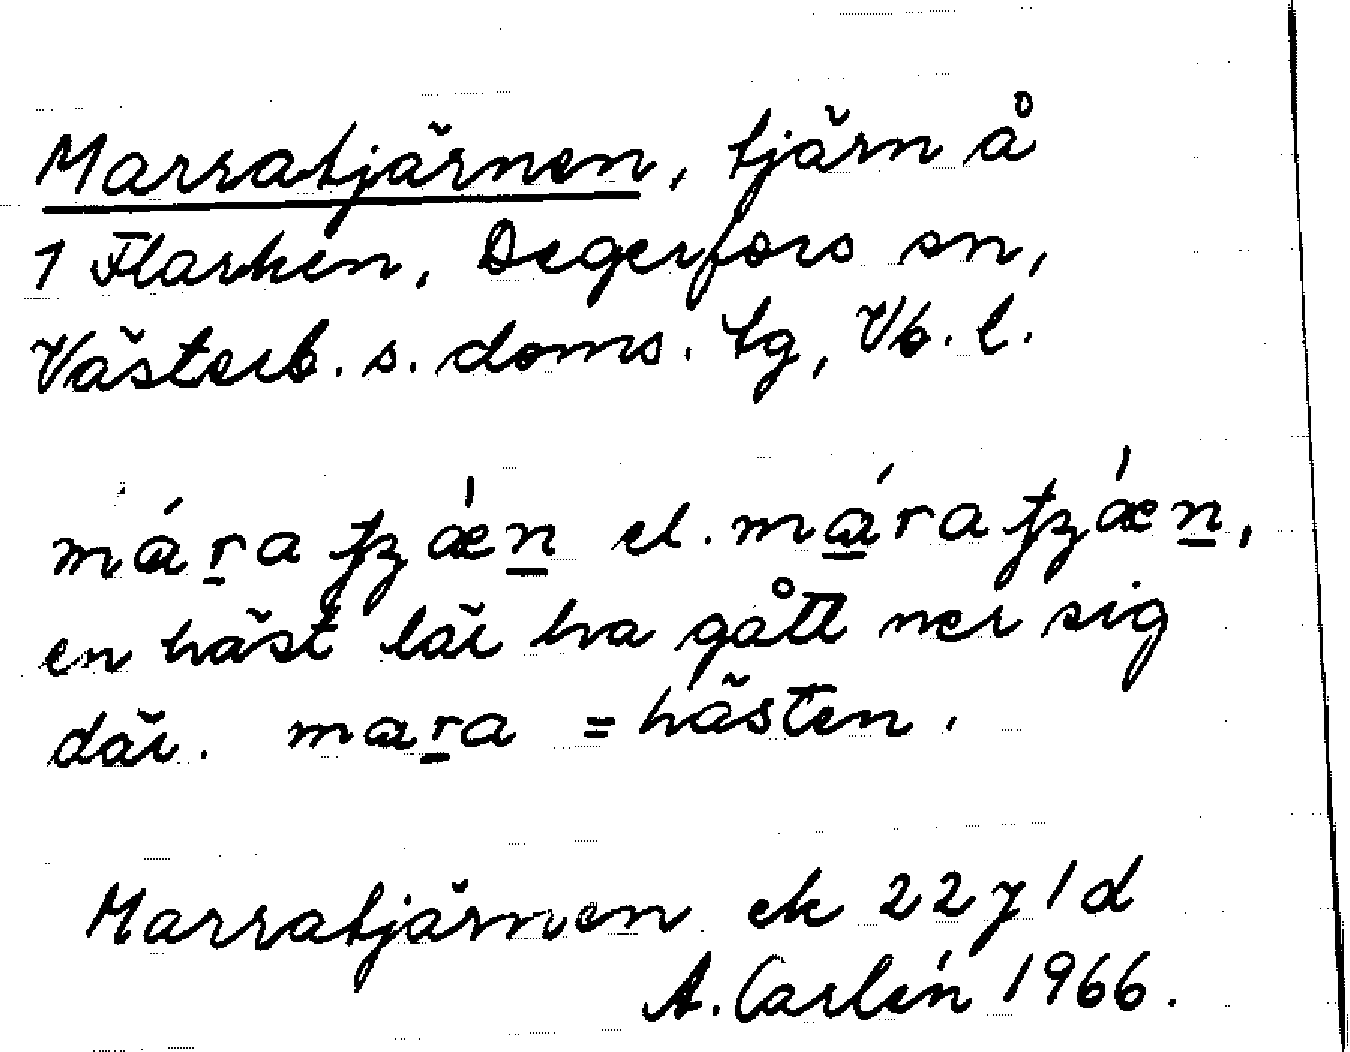 Marratjärnen, tjärn å
1 Flarken, Degerfors sn,
Västerb. s. doms. tg, Vb. l.
el.
en häst lär ha gått ner sig
där. mara = hästen.
Marratjärnen ek 22 y 1 d
A. Carlén 1966.